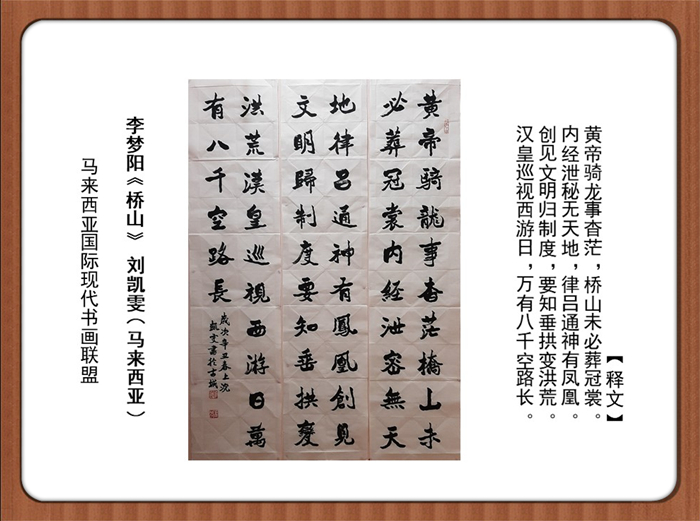 【释文】
黄帝骑龙事杳茫，桥山未必葬冠裳。
内经泄秘无天地，律吕通神有凤凰。
创见文明归制度，要知垂拱变洪荒。
汉皇巡视西游日，万有八千空路长。
黄帝騎龍事杳茫橋山未
必葬冠裳内經泄密無天
地律吕通神有鳳凰創見
文明歸制度要知垂拱變
洪荒漢皇巡視西游日萬
有八千空路長
歲次辛丑春上浣
凱雯書於古城
李梦阳《桥山》 刘凯雯（马来西亚）
马来西亚国际现代书画联盟